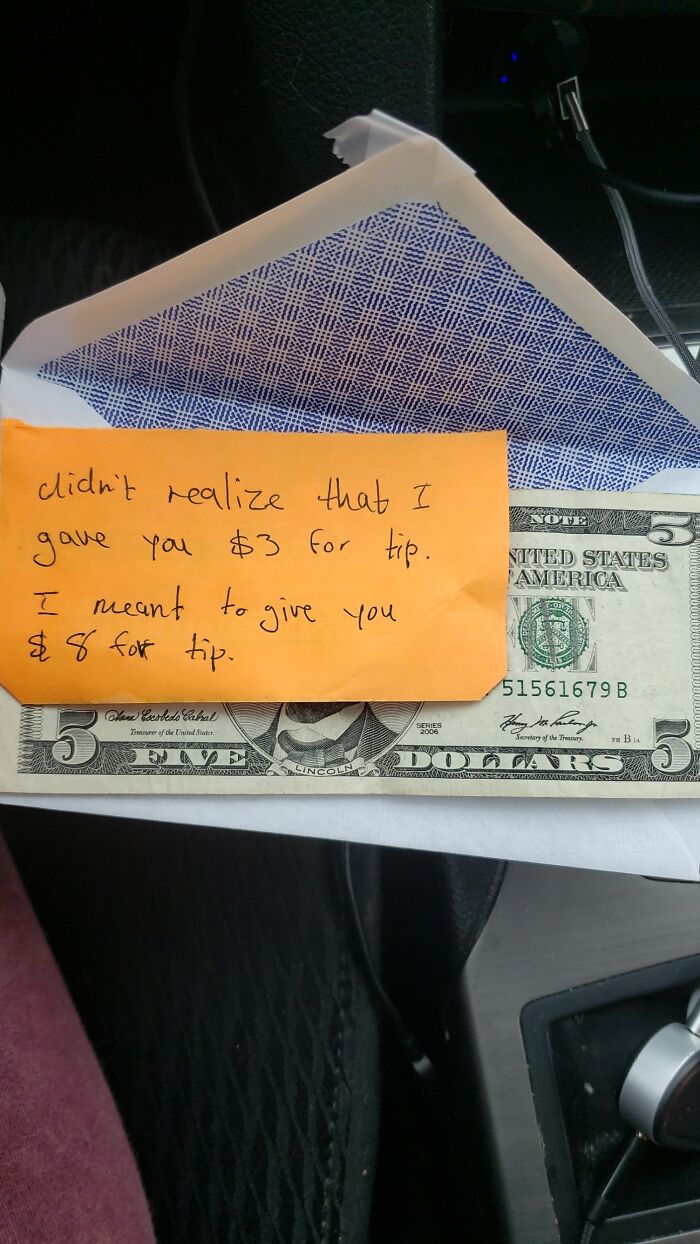 didn't realize that I
gave you $3 for tip.
I meant to give you
$8 for tip.
NOTE
5
NITED STATES
AMERICA
51561679 B
Anna Escobedo Cabral
Treasurer of the United States.
SERIES
2006
Secretary of the Treasury.
FW B 14
5
FIVE
LINCOLN
DOLLARS
5